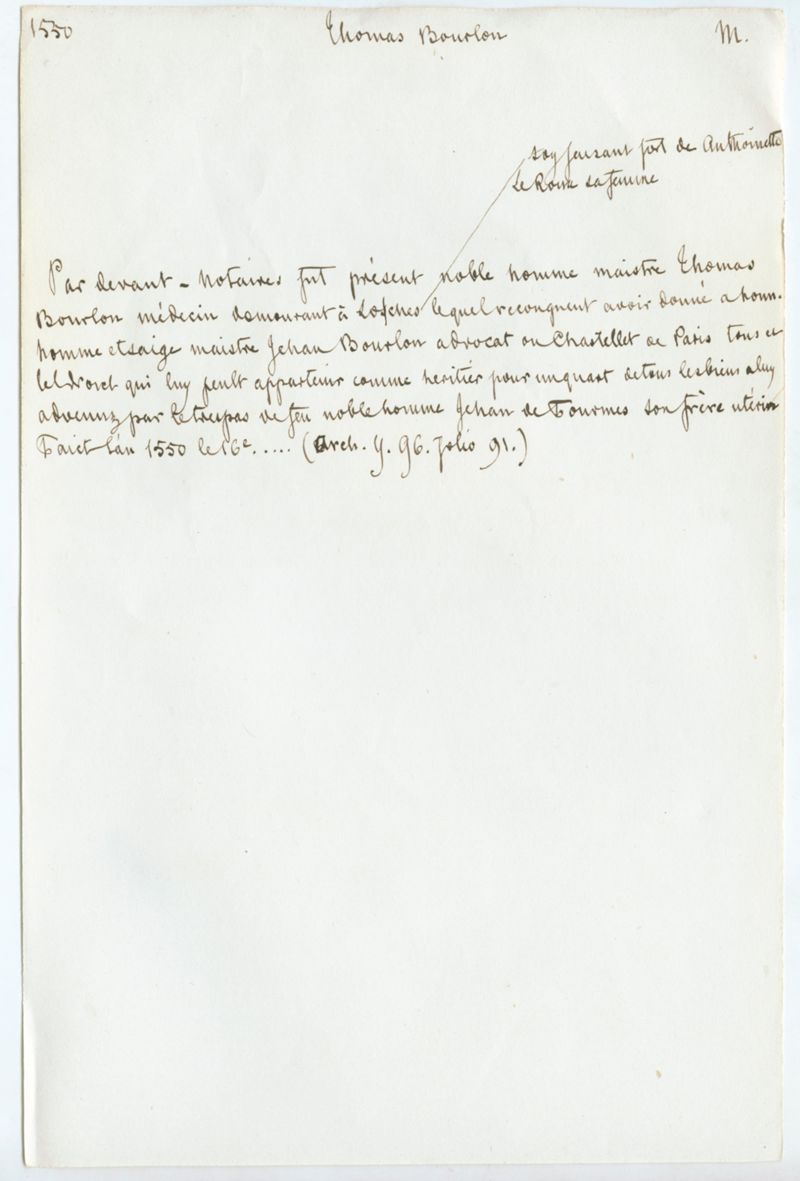 1550 Thomas Bourlon M.
soy faisant fort de Anthoinette
Le Roux sa femme
Par devant - Notaires fut présent noble homme maistre Thomas
Bourlon médecin demourant à Loches lequel recongneut avoir donné a honn.
homme et saige maistre Jehan Bourlon advocat ou Chastellet de Paris tous et
tel droict qui luy peult appartenir comme heritier pour un quart de tous les biens a luy
advenuz par le trepas de feu noble homme Jehan de Tourmes son frère utérin
Faict l'an 1550 le 16e..... (Arch. Y. 96. folio 91.)